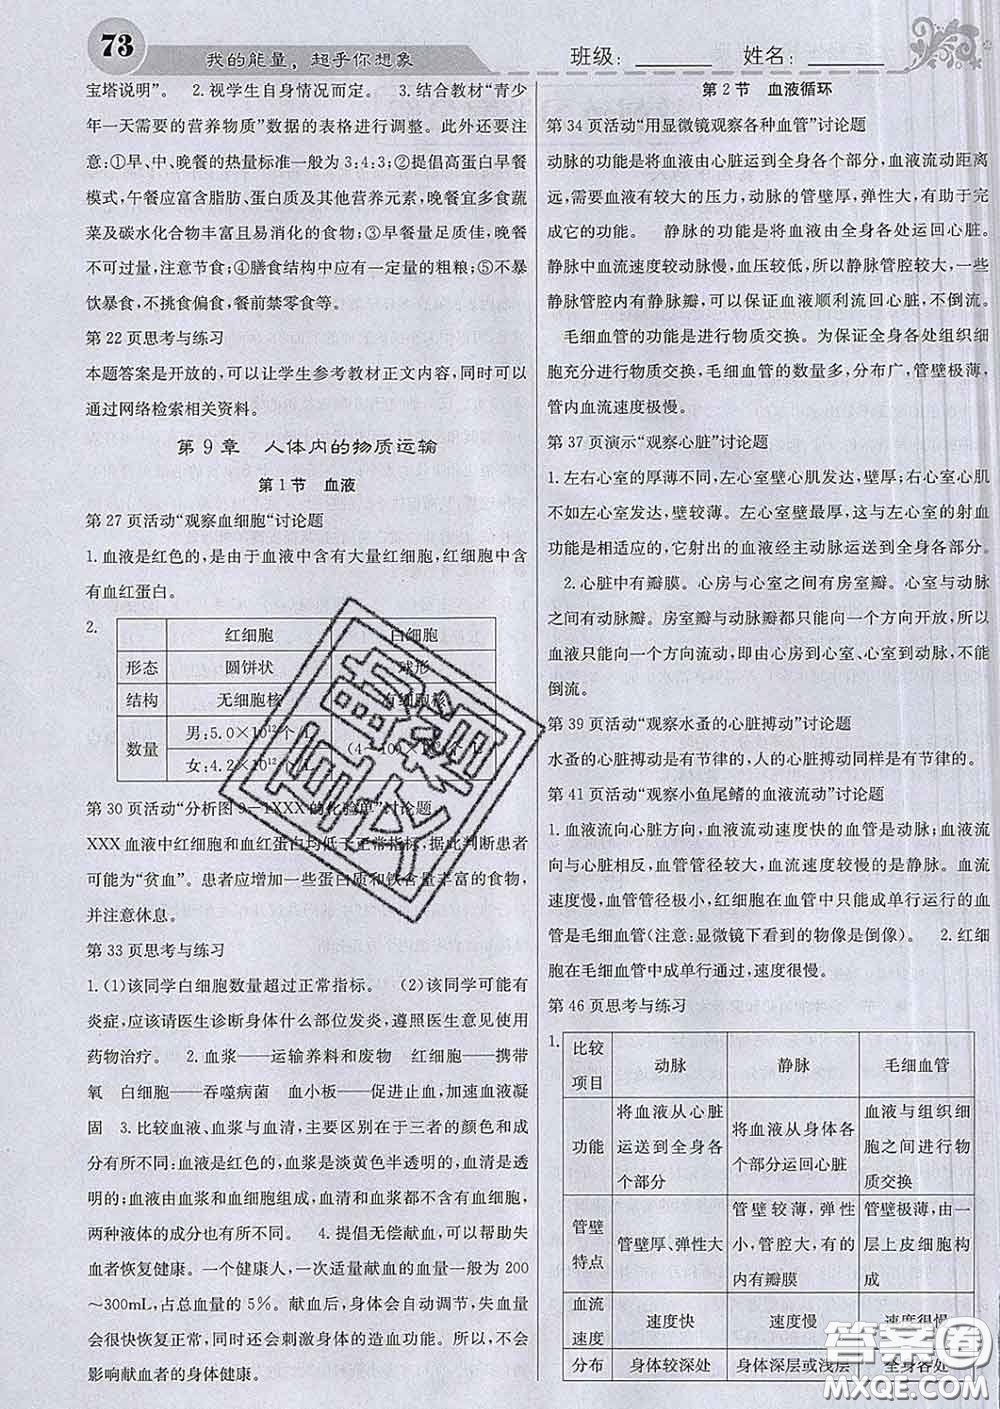 73
我的能量，超乎你想象
班级：
姓名：
宝塔说明”。 2.视学生自身情况而定。 3.结合教材“青少
年一天需要的营养物质”数据的表格进行调整。此外还要注
意：①早、中、晚餐的热量标准一般为3:4:3；②提倡高蛋白早餐
模式，午餐应富含脂肪、蛋白质及其他营养元素，晚餐宜多食蔬
菜及碳水化合物丰富且易消化的食物；③早餐量足质佳，晚餐
不可过量，注意节食；④膳食结构中应有一定量的粗粮；⑤不暴
饮暴食，不挑食偏食，餐前禁零食等。
第22页思考与练习
本题答案是开放的，可以让学生参考教材正文内容，同时可以
通过网络检索相关资料。
第9章 人体内的物质运输
第1节 血液
第27页活动“观察血细胞”讨论题
1.血液是红色的，是由于血液中含有大量红细胞，红细胞中含
有血红蛋白。
2.
红细胞 白细胞
形态 圆饼状 球形
结构 无细胞核 有细胞核
数量 男：5.0×10¹²个/L
女：4.2×10¹²个/L
第30页活动“分析图9－1XXX的化验单”讨论题
XXX血液中红细胞和血红蛋白均低于正常指标，据此判断患者
可能为“贫血”。患者应增加一些蛋白质和铁含量丰富的食物，
并注意休息。
第33页思考与练习
1.(1)该同学白细胞数量超过正常指标。 (2)该同学可能有
炎症，应该请医生诊断身体什么部位发炎，遵照医生意见使用
药物治疗。 2.血浆——运输养料和废物 红细胞——携带
氧 白细胞——吞噬病菌 血小板——促进止血，加速血液凝
固 3.比较血液、血浆与血清，主要区别在于三者的颜色和成
分有所不同：血液是红色的，血浆是淡黄色半透明的，血清是透
明的；血液由血浆和血细胞组成，血清和血浆都不含有血细胞，
两种液体的成分也有所不同。 4.提倡无偿献血，可以帮助失
血者恢复健康。一个健康人，一次适量献血的血量一般为200
～300mL，占总血量的5%。献血后，身体会自动调节，失血量
会很快恢复正常，同时还会刺激身体的造血功能。所以，不会
影响献血者的身体健康。
第2节 血液循环
第34页活动“用显微镜观察各种血管”讨论题
动脉的功能是将血液由心脏运到全身各个部分，血液流动距离
远，需要血液有较大的压力，动脉的管壁厚，弹性大，有助于完
成它的功能。 静脉的功能是将血液由全身各处运回心脏。
静脉中血流速度较动脉慢，血压较低，所以静脉管腔较大，一些
静脉管腔内有静脉瓣，可以保证血液顺利流回心脏，不倒流。
毛细血管的功能是进行物质交换。为保证全身各处组织细
胞充分进行物质交换，毛细血管的数量多，分布广，管壁极薄，
管内血流速度极慢。
第37页演示“观察心脏”讨论题
1.左右心室的厚薄不同，左心室壁心肌发达，壁厚；右心室心肌
不如左心室发达，壁较薄。左心室壁厚，这与左心室的射血
功能是相适应的，它射出的血液经主动脉运送到全身各部分。
2.心脏中有瓣膜。心房与心室之间有房室瓣。心室与动脉
之间有动脉瓣。房室瓣与动脉瓣都只能向一个方向开放，所以
血液只能向一个方向流动，即由心房到心室、心室到动脉，不能
倒流。
第39页活动“观察水蚤的心脏搏动”讨论题
水蚤的心脏搏动是有节律的，人的心脏搏动同样是有节律的。
第41页活动“观察小鱼尾鳍的血液流动”讨论题
1.血液流向心脏方向，血液流动速度快的血管是动脉；血液流
向与心脏相反，血管管径较大，血流速度较慢的是静脉。血流
速度慢，血管管径极小，红细胞在血管中只能成单行运行的血
管是毛细血管(注意：显微镜下看到的物像是倒像)。 2.红细
胞在毛细血管中成单行通过，速度很慢。
第46页思考与练习
1.
比较项目 动脉 静脉 毛细血管
功能 将血液从心脏运送到全身各个部分 将血液从身体各个部分运回心脏 血液与组织细胞之间进行物质交换
管壁特点 管壁厚、弹性大 管壁较薄，弹性小，管腔大，有的内有瓣膜 管壁极薄，由一层上皮细胞构成
血流速度 速度快 速度慢 速度很慢
分布 身体较深处 身体深层或浅层 全身各处
答案圈
MXQE.COM